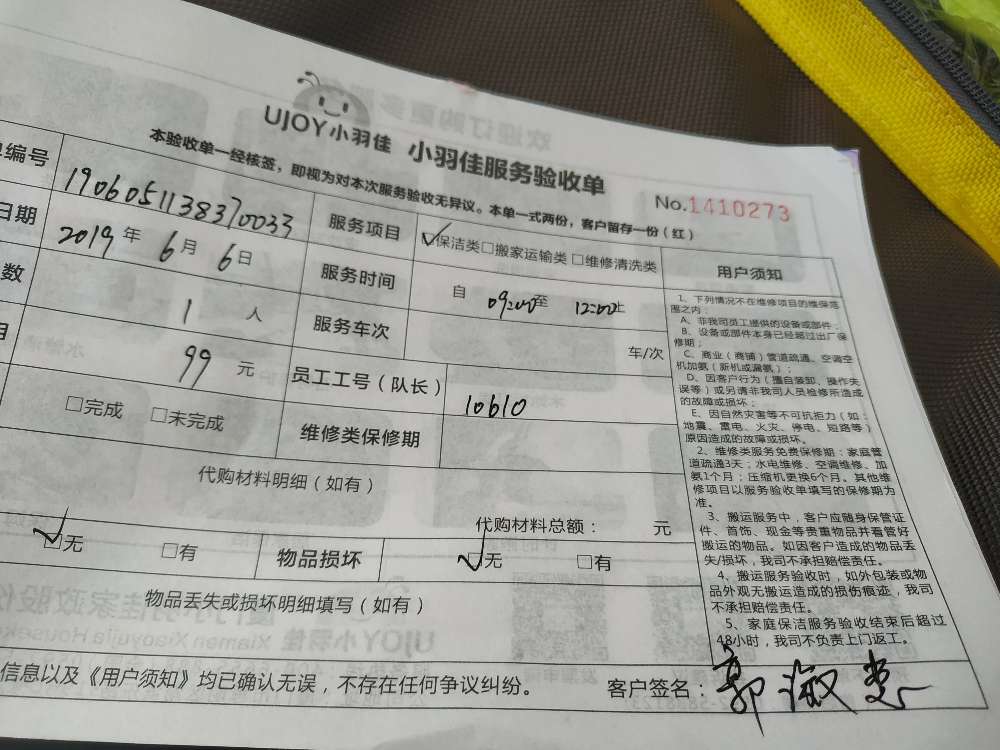 UJOY小羽佳 小羽佳服务验收单
本验收单一经核签，即视为对本次服务验收无异议。本单一式两份，客户留存一份（红）
No.1410273
编号 1906051138370033 服务项目 ☑保洁类□搬家运输类 □维修清洗类
日期 2019 年 6 月 6 日 服务时间 自 09:00 至 12:00 止
数 1 人 服务车次 车/次
99 元 员工工号（队长） 10610
□完成 □未完成 维修类保修期
代购材料明细（如有）
代购材料总额： 元
☑无 □有 物品损坏 ☑无 □有
物品丢失或损坏明细填写（如有）
信息以及《用户须知》均已确认无误，不存在任何争议纠纷。 客户签名：
用户须知
1、下列情况不在维修项目的维保范
围之内：
A、非我司员工提供的设备或部件；
B、设备或部件本身已经超过出厂保
修期；
C、商业（商铺）管道疏通、空调空
机加氨（新机或漏氨）；
D、因客户行为（擅自装卸、操作失
误等）或另请非我司人员检修所造成
的故障或损坏；
E、因自然灾害等不可抗拒力（如：
地震、雷电、火灾、停电、短路等）
原因造成的故障或损坏。
2、维修类服务免费保修期：家庭管
道疏通3天；水电维修、空调维修、加
氨1个月；压缩机更换6个月。其他维
修项目以服务验收单填写的保修期为
准。
3、搬运服务中，客户应随身保管证
件、首饰、现金等贵重物品并看管好
搬运的物品。如因客户造成的物品丢
失/损坏，我司不承担赔偿责任。
4、搬运服务验收时，如外包装或物
品外观无搬运造成的损伤痕迹，我司
不承担赔偿责任。
5、家庭保洁服务验收结束后超过
48小时，我司不负责上门返工。